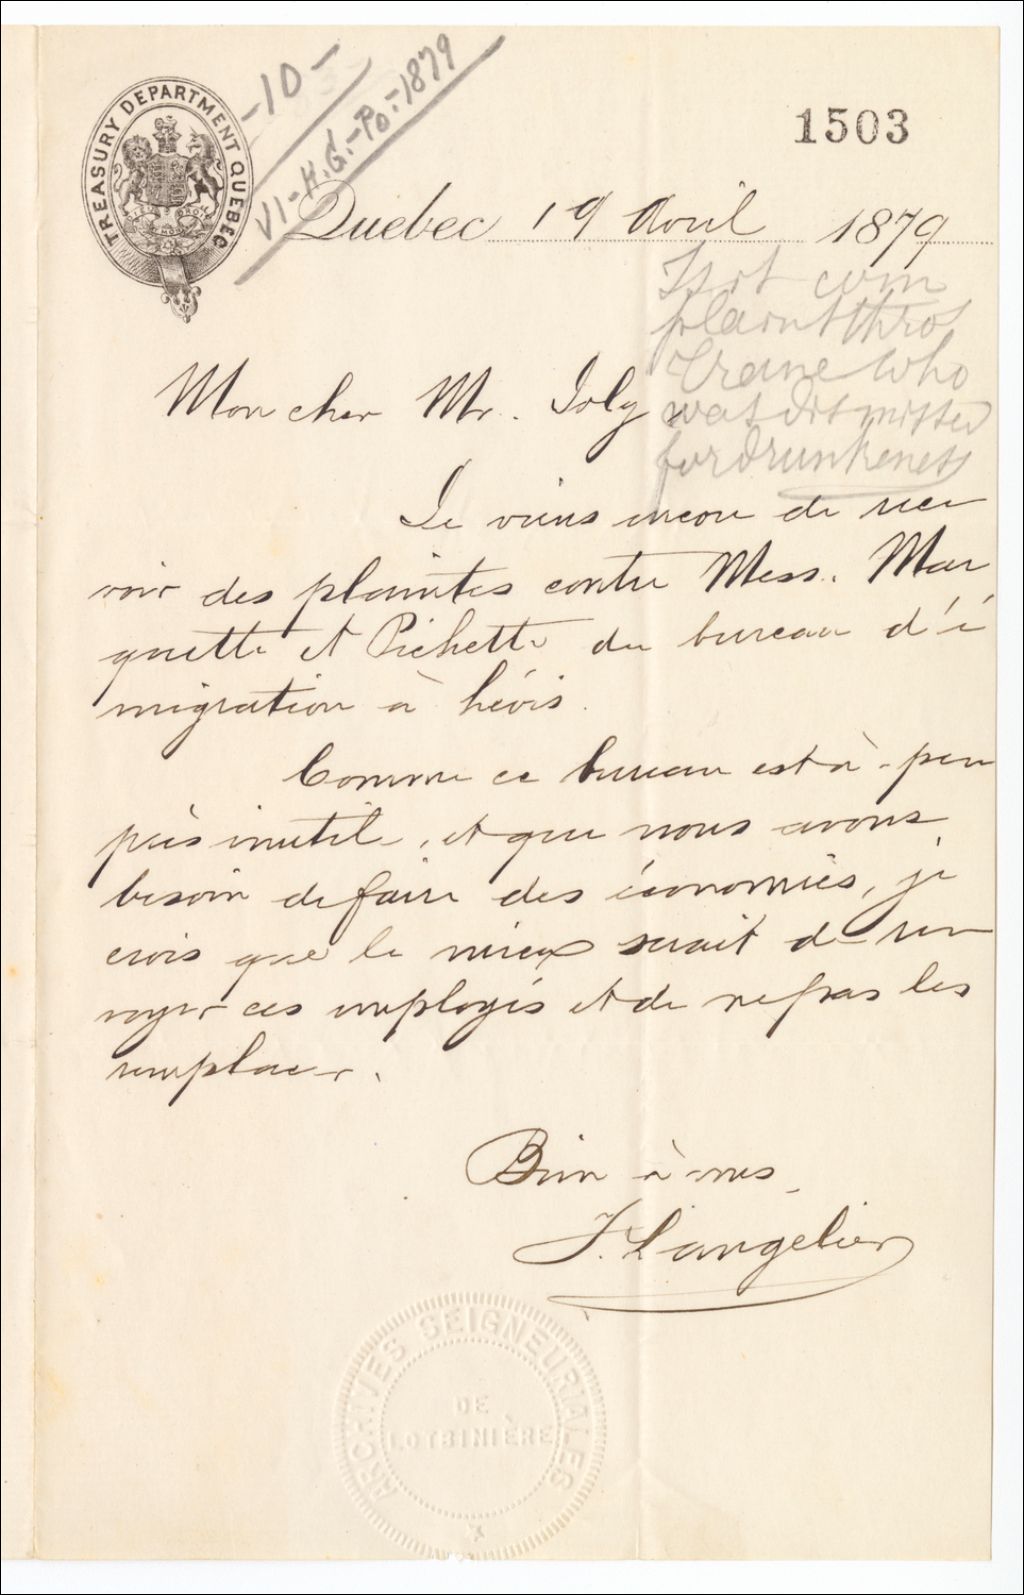 TREASURY DEPARTMENT QUEBEC
-10-
VI-H.G.-Po.-1879
1503
Quebec 19 Avril 1879
Is it com
plaint thro'
Crane who
was dismissed
for drunkeness
Mon cher Mr. Joly
Je viens encore de rece
voir des plaintes contre Mess. Mar
quette et Pichette du bureau d'é
migration à Lévis.
Comme ce bureau est à-peu
près inutile, et que nous avons
besoin de faire des économies, je
crois que le mieux serait de ren
voyer ces employés et de ne pas les
remplacer.
Bien à vous
F. Langelier
ARCHIVES SEIGNEURIALES
DE
LOTBINIÈRE